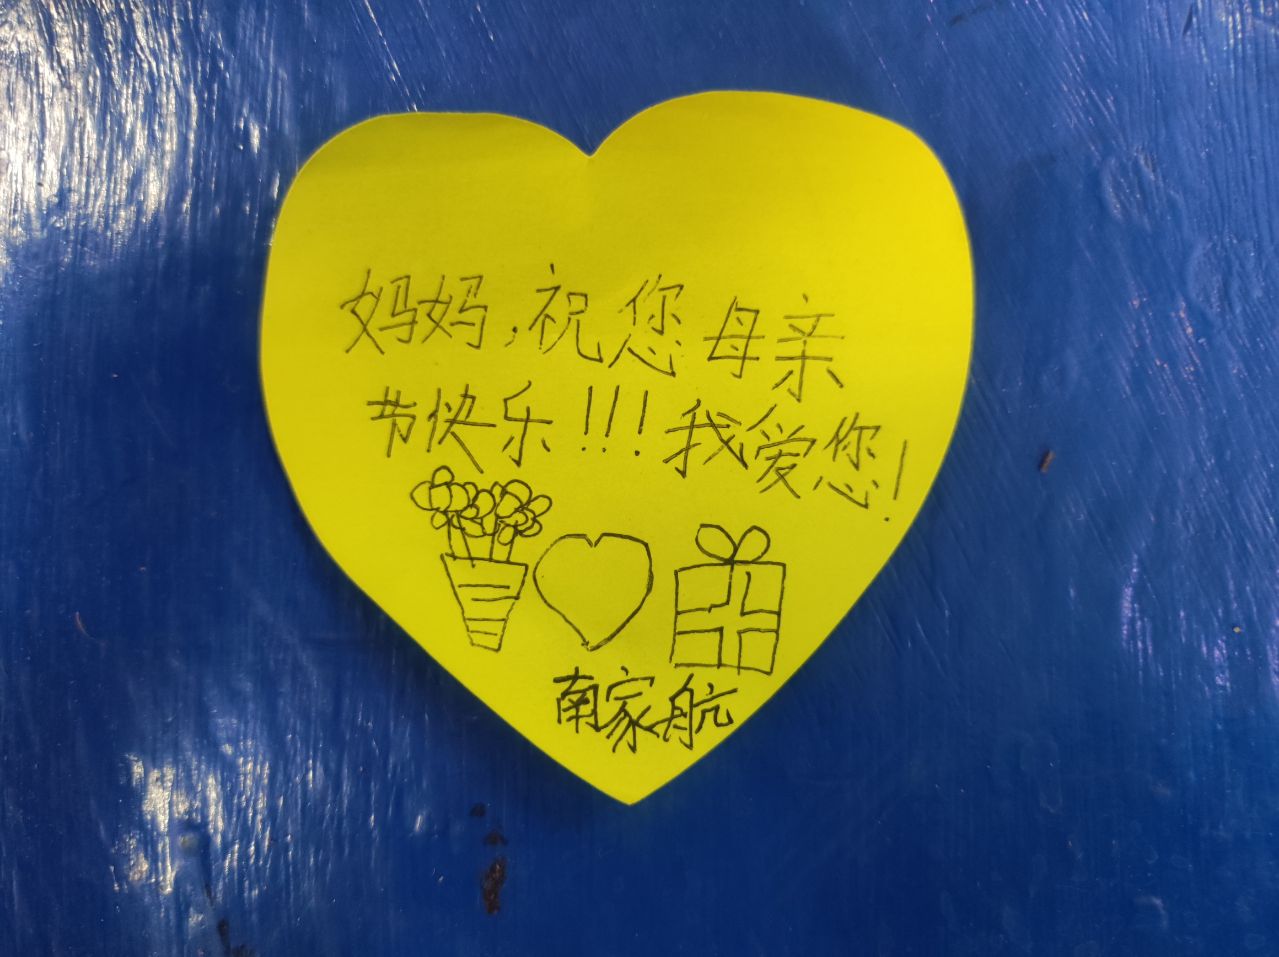 妈妈,祝您母亲
节快乐!!!我爱您!
南家航